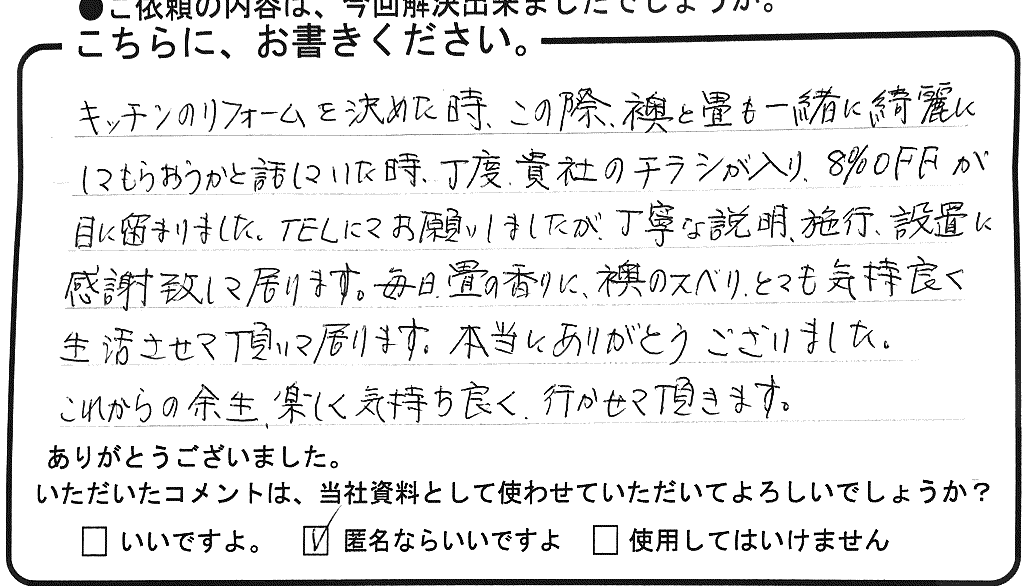 ●ご依頼の内容は、今回解決出来ましたでしょうか。
こちらに、お書きください。
キッチンのリフォームを決めた時、この際、襖と畳も一緒に綺麗に
してもらおうかと話していた時、丁度、貴社のチラシが入り、8%OFFが
目に留まりました。TELにてお願いしましたが、丁寧な説明、施行、設置に
感謝致して居ります。毎日、畳の香りに、襖のスベリ、とても気持良く
生活させて頂いて居ります。本当にありがとうございました。
これからの余生、楽しく気持ち良く、行かせて頂きます。
ありがとうございました。
いただいたコメントは、当社資料として使わせていただいてよろしいでしょうか？
□ いいですよ。 ☑ 匿名ならいいですよ □ 使用してはいけません